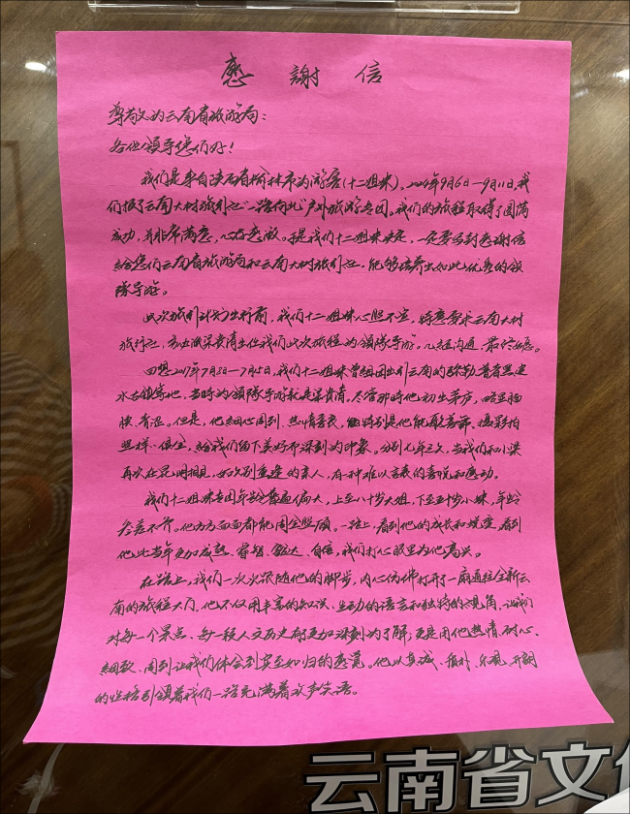 感 謝 信
尊敬的云南省旅游局：
各位领导您们好！
我们是来自陕西省榆林市的游客（十二姐妹），2024年9月6日—9月11日，我
们报了云南大树旅行社“一路向北”户外旅游专团。我们的旅程取得了圆满
成功，并非常满意，心存感激。于是我们十二姐妹决定，一定要写封感谢信
给您们云南省旅游局和云南大树旅行社，能够培养出如此优秀的领
队导游。
此次旅行计划出行前，我们十二姐妹心照不宣，特意要求云南大树
旅行社，梁贵清出任我们此次旅程的领队导游。几经沟通，最终如愿。
回想2017年7月2日—7月5日，我们十二姐妹曾组团出行云南的弥勒普者黑建
水古镇等地，当时的领队导游就是梁贵清，尽管那时他初出茅庐，略显腼
腆、青涩。但是，他细心周到、热情善良，特别是他能歌善舞、摄影拍
照样样俱全，给我们留下美好而深刻的印象。分别七年之久，当我们和小梁
再次在昆明相见，如久别重逢的亲人，有种难以言表的喜悦和感动。
我们十二姐妹专团年龄普遍偏大，上至八十岁大姐，下至五十岁小妹，年龄
参差不齐。他方方面面都能周全照顾，一路上，看到他的成长和蜕变，看到
他比当年更加成熟、睿智、豁达、自信，我们打心眼里为他高兴。
在路上，我们一次次跟随他的脚步，内心仿佛打开了一扇通往全新云
南的旅程大门，他不仅用丰富的知识、生动的语言和独特的视角，让我们
对每一个景点、每一段人文历史都更加深刻的了解；更是用他热情、耐心、
细致、周到让我们体会到宾至如归的感觉。他以真诚、质朴、乐观、开朗
的性格引领着我们一路充满着欢声笑语。
云南省文